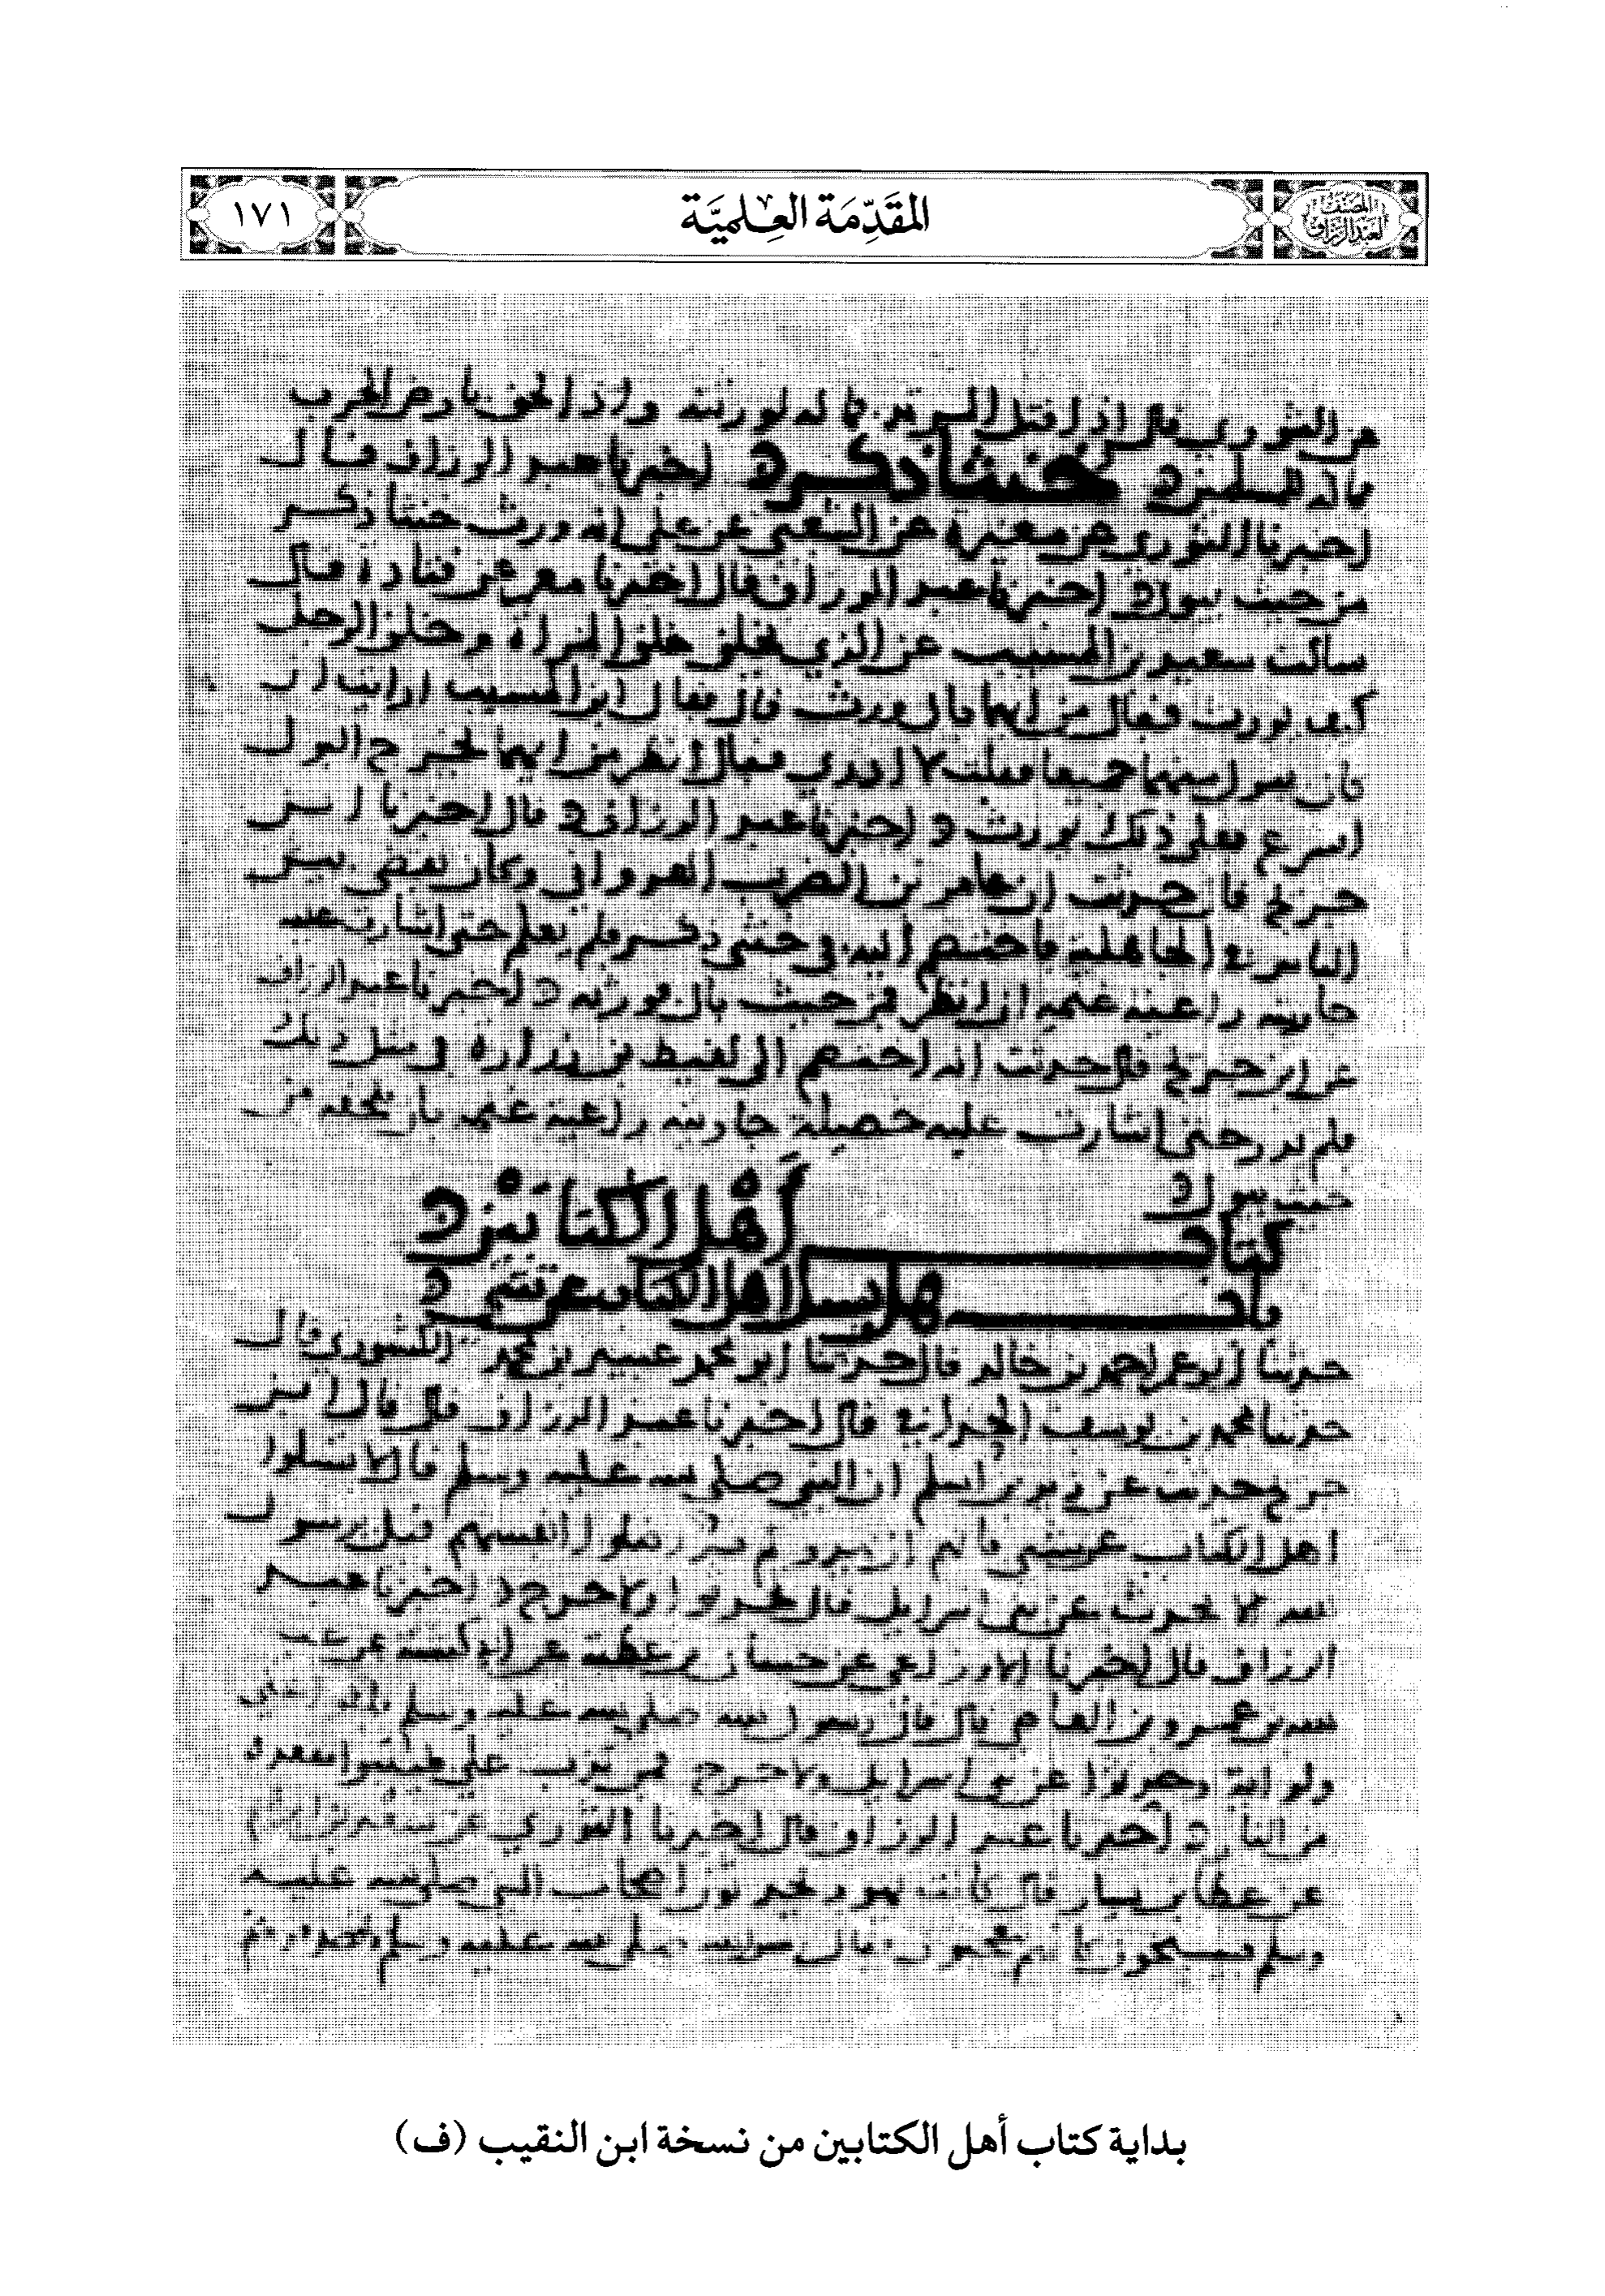 المصنف لعبد الرزاق
المقَدِّمَة العِلميَّة
١٧١
عن الثوري قال اذا قتل المرتد فماله لورثته واذا لحق بارض الحرب
فماله للمسلمين خنثا ذكر اخبرنا عبد الرزاق قال
اخبرنا الثوري عن مغيرة عن الشعبي عن علي انه ورث خنثا ذكر
من حيث يبول اخبرنا عبد الرزاق قال اخبرنا معمر عن قتادة قال
سالت سعيد بن المسيب عن الذي يخلق خلق المراة وخلق الرجل
كيف يورث فقال من ايهما بال ورث قال فقال ابن المسيب ارايت ان
كان يبول منهما جميعا فقلت لا ادري فقال انظر من ايهما يخرج البول
اسرع فعلى ذلك يورث اخبرنا عبد الرزاق قال اخبرنا ابن
جريج قال حدثت ان عامر بن الضرب العدواني وكان يقضي بين
الناس في الجاهلية فاختصم اليه في خنثى ذكر فلم يعلم حتى اشارت عليه
جاريته راعية غنمه ان انظر فمن حيث بال فورثه اخبرنا عبد الرزاق
عن ابن جريج قال حدثت انه اختصم الى لقيط بن زرارة في مثل ذلك
فلم يدر حتى اشارت عليه خصيلة جاريته راعية غنمه بان يلحقه من
حيث يبول
كتاب أهل الكتابين
باب هل يسل اهل الكتاب عن شي
حدثنا ابو عمر احمد بن خالد قال حدثنا ابو محمد عبيد بن محمد الكشوري قال
حدثنا محمد بن يوسف الحذاقي قال اخبرنا عبد الرزاق قال قال ابن
جريج حدثت عن زيد بن اسلم ان النبي صلى الله عليه وسلم قال لا تسلوا
اهل الكتاب عن شي فانهم لن يهدوكم قد اضلوا انفسهم قيل يرسول
الله الا نحدث عن بني اسرايل قال حدثوا ولا حرج اخبرنا عبد
الرزاق قال اخبرنا الاوزاعي عن حسان بن عطية عن ابي كبشة عن عبد
الله بن عمرو بن العاص قال قال رسول الله صلى الله عليه وسلم بلغوا عني
ولو اية وحدثوا عن بني اسرايل ولا حرج فمن كذب علي فليتبوا مقعده
من النار اخبرنا عبد الرزاق قال اخبرنا الثوري عن سعد بن ابراهيم
عن عطا بن يسار قال كانت يهود يحدثون اصحاب النبي صلى الله عليه
وسلم فيسبحون كانهم يعجبون فقال رسول الله صلى الله عليه وسلم لا تصدقوهم
بداية كتاب أهل الكتابين من نسخة ابن النقيب (ف)